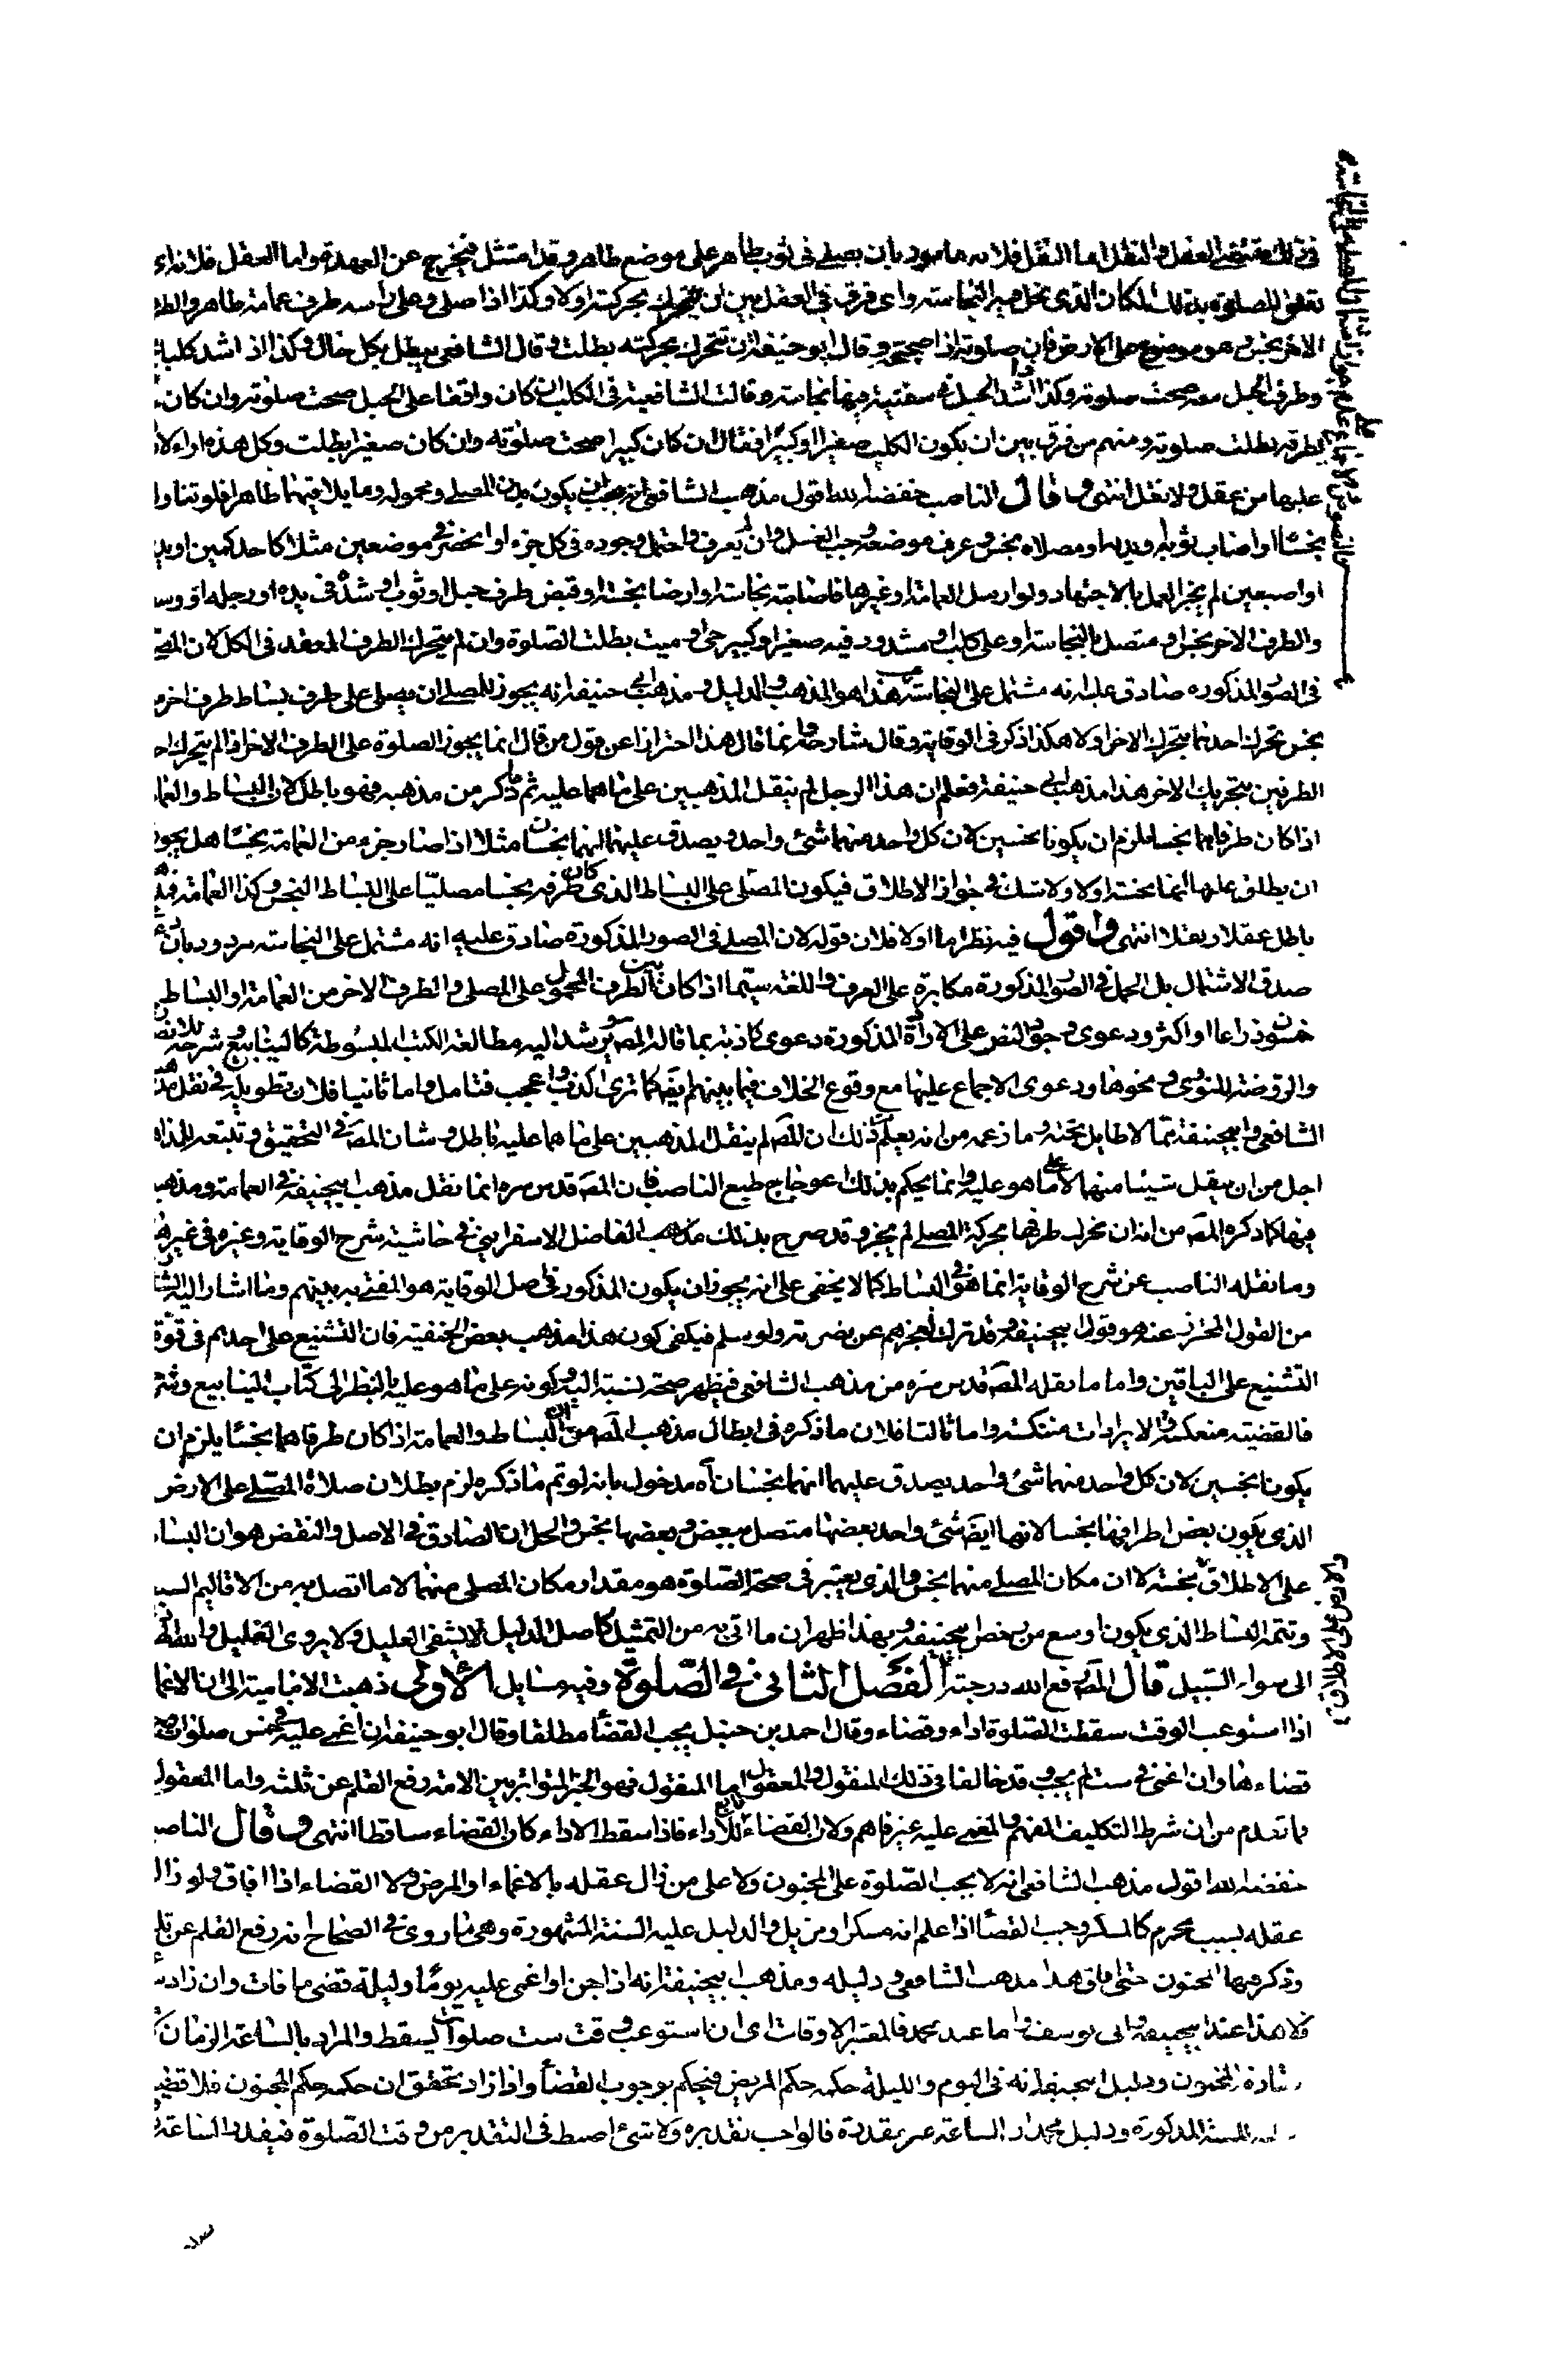 في ذلك مقتضى العقل والنقل اما النقل فلانه مامور بان يصلي في ثوب طاهر على موضع طاهر وقد امتثل فيخرج عن العهدة واما العقل فلانه
تعلق للصلوة بذلك المكان الذي يحل فيه النجاسة واى فرق في العقل بين ان يتحرك بحركته اولا وكذا اذا صلى وعلى راسه طرف عمامة طاهر والط
الاخر نجس وهو موضوع على الارض فان صلوته صحيحة وقال ابو حنيفة ان تتحرك بحركته بطلت وقال الشافعي يبطل بكل حال وكذا اذا شد كلبا
وطرف الحبل معه صحت صلوته وكذا اذا شد الحبل في سفينة فيها نجاسة وقالت الشافعية في الكلب ان كان واقفا على الحبل صحت صلوته وان كان
بطرفه بطلت صلوته ومنهم من فرق بين ان يكون الكلب صغيرا او كبيرا فقال ان كان كبيرا صحت صلوته وان كان صغيرا بطلت وكل هذه اراء لا
عليها من عقل ولا نقل انتهى وقال الناصب خفضه الله اقول مذهب الشافعي انه يجب ان يكون بدن المصلي ومحموله وما يلاقيهما طاهرا فلو
نجسا او اصاب ثوبه او بدنه او مصلاه نجس وعرف موضعه وجب الغسل وان لم يعرف واحتمل وجوده في كل جزء او انحصر في موضعين مثلا كاحد كمين او يد
او اصبعين لم يجز العمل بالاجتهاد ولو ارسل العمامة او غيرها فاصابته نجاسة او ارضا نجسة او قبض طرف حبل او ثوب او شد في يده او رجله او وس
والطرف الاخر نجس او متصل بالنجاسة او على كلب او مشدود فيه صغير او كبير حي او ميت بطلت الصلوة وان لم يتحرك الطرف المعقد في الكل لان
في الصور المذكورة صادق عليه انه مشتمل على النجاسة هذا هو المذهب والدليل ومذهب ابي حنيفة انه يجوز للمصلي ان يصلي على طرف بساط طرف اخر
نجس تحرك احدهما بتحرك الاخر اولا هكذا ذكر في الوقاية وقال شارحه وانما قال هذا احترازا عن قول من قال انما يجوز الصلوة على الطرف الاخر اذا لم يتحرك احد
الطرفين بتحريك الاخر هذا مذهب ابي حنيفة فعلم ان هذا الرجل لم ينقل المذهبين على ما هما عليه ثم ما ذكر من مذهبه فهو باطل لان البساط والعما
اذا كان طرفاهما نجسا يلزم ان يكونا نجسين لان كل واحد منهما شئ واحد ويصدق عليهما انهما نجسان مثلا اذا صار جزء من العمامة نجسا هل يجوز
ان يطلق عليها انها نجسة اولا ولا شك في جواز الاطلاق فيكون المصلي على البساط الذي كان طرفه نجسا مصليا على البساط النجس وكذا العمامة
باطل عقلا ونقلا انتهى واقول فيه نظر اما اولا فلان قوله لان المصلي في الصور المذكورة صادق عليه انه مشتمل على النجاسة مردود بان
صدق الاشتمال بل الحمل في الصور المذكورة مكابرة على العرف واللغة سيما اذا كان بين الطرف المحمول على المصلي والطرف الاخر من العمامة او البساط
خمسون ذراعا او اكثر ودعوى وجود النص على الاراء المذكورة دعوى كاذبة بما قاله المص يرشد اليه مطالعة الكتب المبسوطة كالينابيع وشرحه للانص
والروضة للنووي ونحوها ودعوى الاجماع عليها مع وقوع الخلاف فيما بينهم ايضا كما ترى اكذب واعجب فتامل واما ثانيا فلان تطويله في نقل مذ
الشافعي وابيحنيفة مما لا طايل تحته وما زعمه من انه يعلم من ذلك ان المص لم ينقل المذهبين على ما هما عليه باطل وشان المص في التحقيق وتتبعه للمذا
اجل من ان ينقل شيئا منهما لا على ما هو عليه وانما يحكم بذلك اعوجاج طبع الناصب فان المص قدس سره انما نقل مذهب ابيحنيفة في العمامة ومذهب
فيها كما ذكره المص من انه ان تحرك طرفها بحركة المصلي لم يجز وقد صرح بذلك مذهب الفاضل الاسفرايني في حاشية شرح الوقاية وغيره في غير
وما نقله الناصب عن شرح الوقاية انما هو في البساط كما لا يخفى على انه يجوز ان يكون المذكور في اصل الوقاية هو المفتى به بينهم وما اشار اليه الش
من القول المحترز عنه هو قول ابيحنيفة وقد ترك لعجزهم عن نصرته ولو سلم فيكفي كون هذا مذهب بعض الحنفية فان التشنيع على احدهم في قوة
التشنيع على الباقين واما ما نقله المص قدس سره من مذهب الشافعي فيظهر صحة نسبته اليه وكونه على ما هو عليه بالنظر الى كتاب الينابيع وشر
فالقضية منعكسة والايرادات منتكسة واما ثالثا فلان ما ذكره في ابطال مذهب المص من ان البساط والعمامة اذا كان طرفاهما نجسا يلزم ان
يكونا نجسين لان كل واحد منهما شئ واحد يصدق عليهما انهما نجسان اه مدخول بانه لو تم ما ذكره لزم بطلان صلاة المصلي على الارض
الذي يكون بعض اطرافها نجسا لانها ايضا شئ واحد بعضها متصل ببعض وبعضها نجس والحل ان الصادق في الاصل والنقض هو ان البسا
على الاطلاق نجسة لا ان مكان المصلي منهما نجس والذي يعتبر في صحة الصلوة هو مقدار مكان المصلي منهما لا ما اتصل به من الاقاليم السب
وتتمة البساط الذي يكون اوسع من رخص ابيحنيفة وبهذا ظهر ان ما اتى به من التمثيل كاصل الدليل لا يشفي العليل ولا يروى الغليل والله
الى سواء السبيل قال المص رفع الله درجته الفصل الثاني في الصلوة وفيه مسايل الاولى ذهبت الامامية الى ان الاغما
اذا استوعب الوقت سقطت الصلوة اداء وقضاء وقال احمد بن حنبل يجب القضاء مطلقا وقال ابو حنيفة ان اغمي عليه في خمس صلوات
قضاءها وان اغمى في ست لم يجب وقد خالفا في ذلك المنقول والمعقول اما المنقول فهو الخبر المتواتر بين الامة رفع القلم عن ثلثة واما المعقول
ما تقدم من ان شرط التكليف الفهم والمغمى عليه غير فاهم ولان القضاء تابع للاداء فاذا سقط الاداء كان القضاء ساقطا انتهى وقال الناصب
خفضه الله اقول مذهب الشافعي انه لا يجب الصلوة على المجنون ولا على من زال عقله بالاغماء او المرض ولا القضاء اذا افاق ولو زال
عقله بسبب محرم كالمسكر وجب القضاء اذا علم انه مسكر او مزيل والدليل عليه السنة المشهورة وهي ما روى في الصحاح انه رفع القلم عن ثل
وذكر فيها المجنون حتى افاق هذا مذهب الشافعي ودليله ومذهب ابيحنيفة انه اذا جن او اغمى عليه يوما وليلة قضى ما فات وان زاد
فلا هذا عند ابيحنيفة وابى يوسف واما عند محمد فالمعتبر الاوقات اى ان استوعب وقت ست صلوات يسقط والمراد بالساعة الزمان
المجنون ودليل ابيحنيفة انه في اليوم والليلة حكمه حكم المريض فيحكم بوجوب القضاء واذا زاد تحقق ان حكمه حكم المجنون فلا
للسنة المذكورة ودليل محمد ان الساعة غير مقدرة فالواجب تقديره ولا شئ اضبط في التقدير من وقت الصلوة فيفيد الساعة